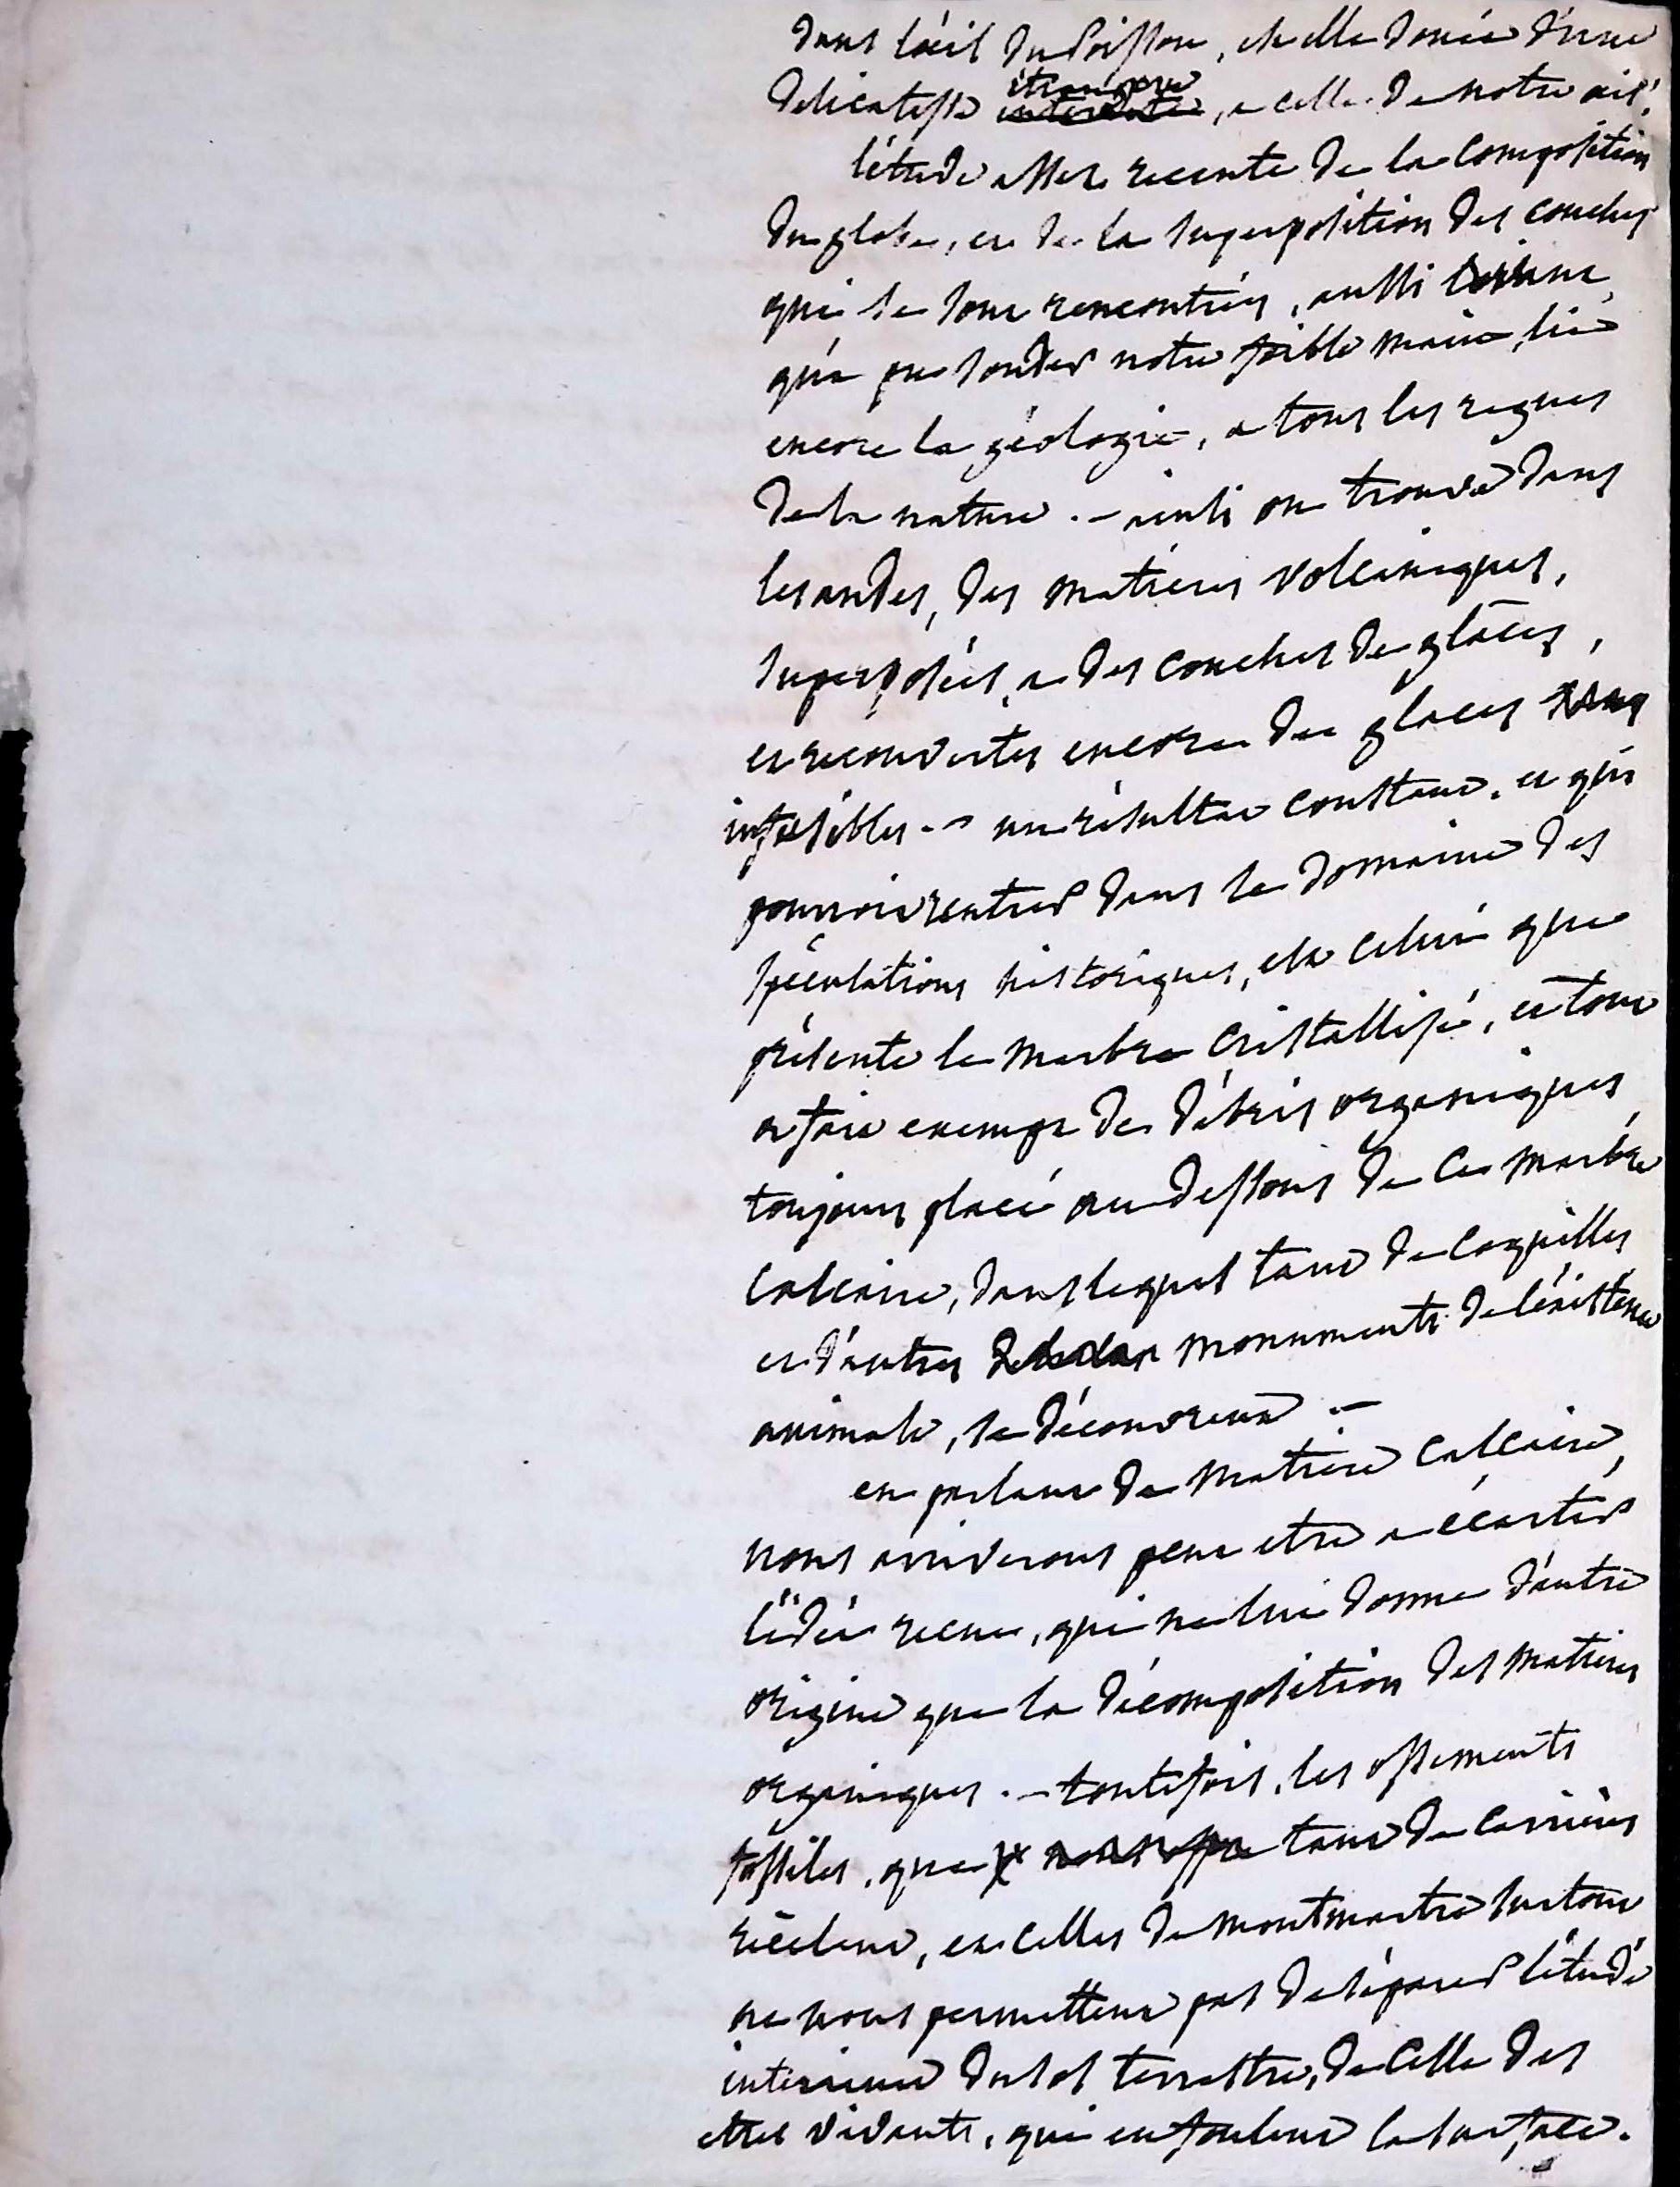 dans l'œil du Poisson, est elle douée d'une
delicatesse étrangere, a celle de notre œil.
l'étude assez recente de la Composition
du globe, et de la superposition des couches
qui se sont rencontrées, aussi
qu'a pu sonder notre foible main, lie
encore la géologie, a tous les regnes
de la nature. - ainsi on trouve dans
les andes, des matieres volcaniques,
superposées, a des couches de glâces,
et recouvertes encore de glaces
infusibles. - un résultat constant, et qui
pourroit rentrer dans le domaine des
spéculations historiques, est celui que
présente le marbre Cristallisé, et tout
a fait exempt de débris organiques,
toujours placé au dessous de ce marbre
Calcaire, dans lequel tant de Coquilles
et d'autres monuments de l'éxistence
animale, se découvrent. -
en parlant de matiere Calcaire,
nous arriverons peut etre a écarter
l'idée recue, qui ne lui donne d'autre
origine que la décomposition des matieres
organiques. - toutefois, les ossements
fossiles, que tant de Carrieres
recèlent, et celles de montmartre surtout
ne nous permettent pas de séparer l'étude
interieure du sol terrestre, de Celle des
etres vivants, qui en foulent la surface.